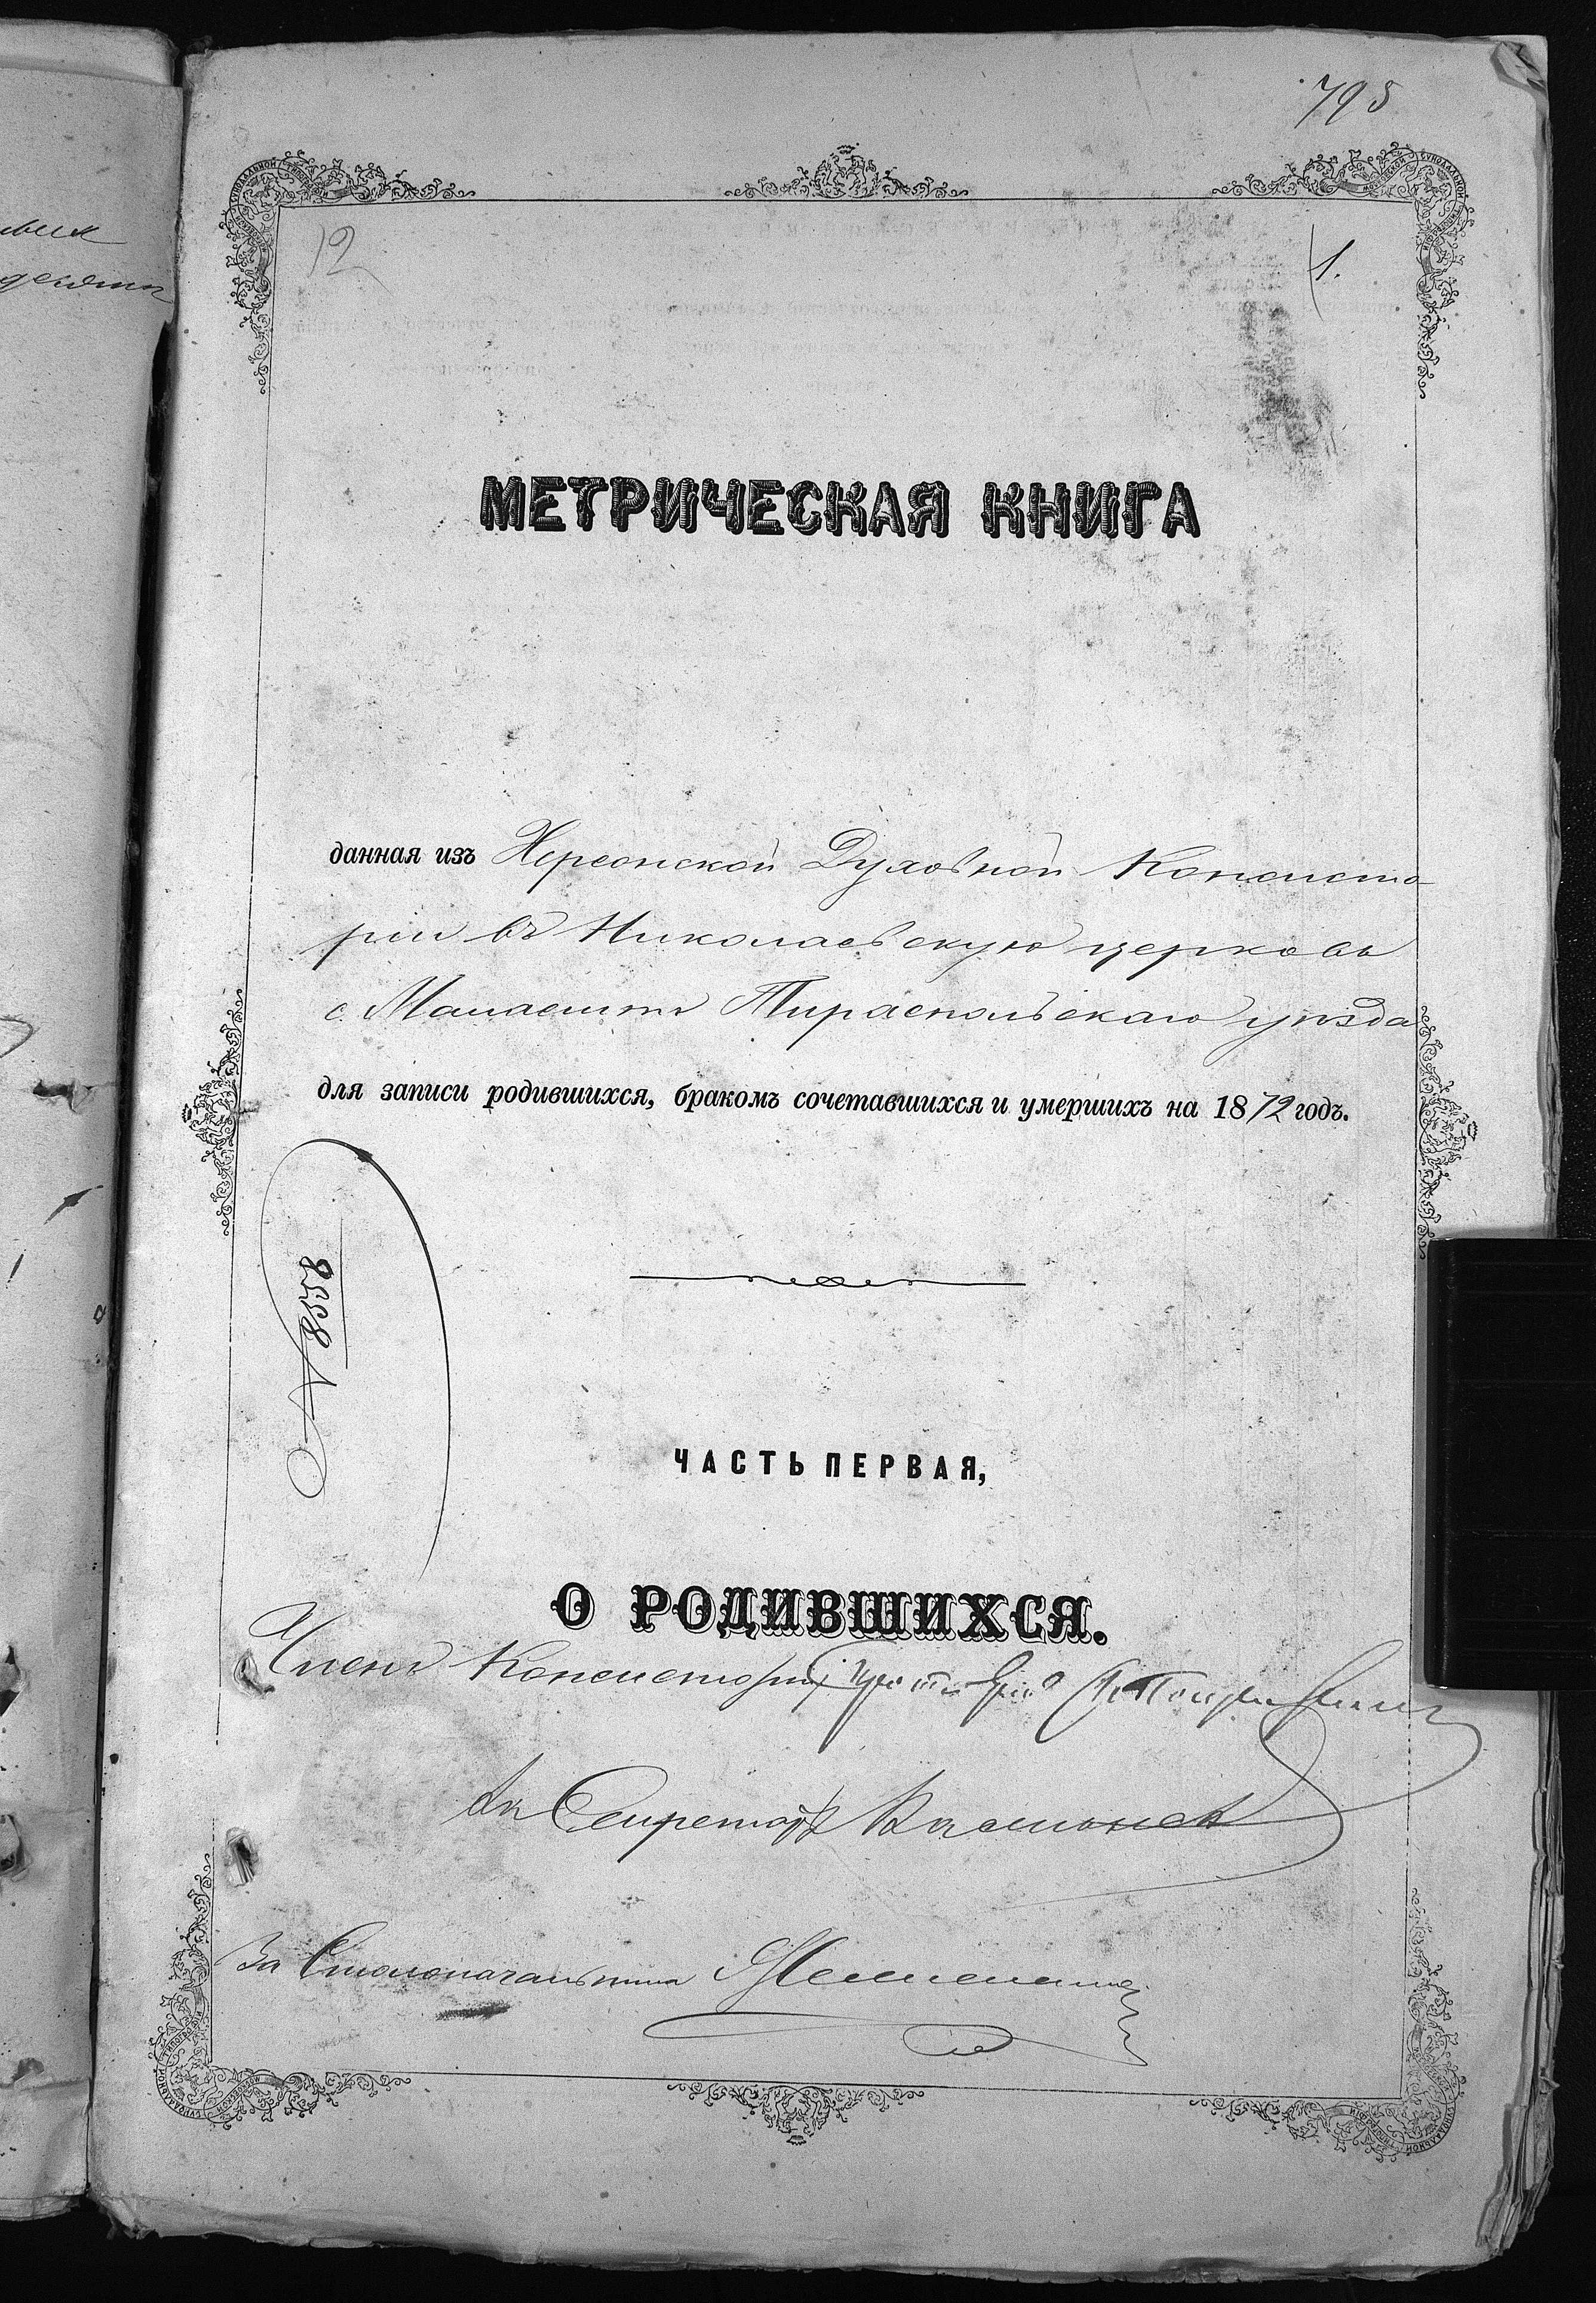 795
12
1.
МЕТРИЧЕСКАЯ КНИГА
данная изъ Херсонской Духовной Консисто
ріи въ Николаевскую церковь
с. Маяцкаго Тираспольскаго уѣзда
для записи родившихся, бракомъ сочетавшихся и умершихъ на 1872 годъ.
№ 8558
ЧАСТЬ ПЕРВАЯ,
О РОДИВШИХСЯ.
Членъ Консисторіи
Секретарь
За Столоначальника